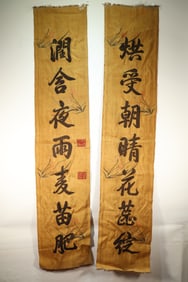 烘受朝晴花蕊綻
潤含夜雨麦苗肥